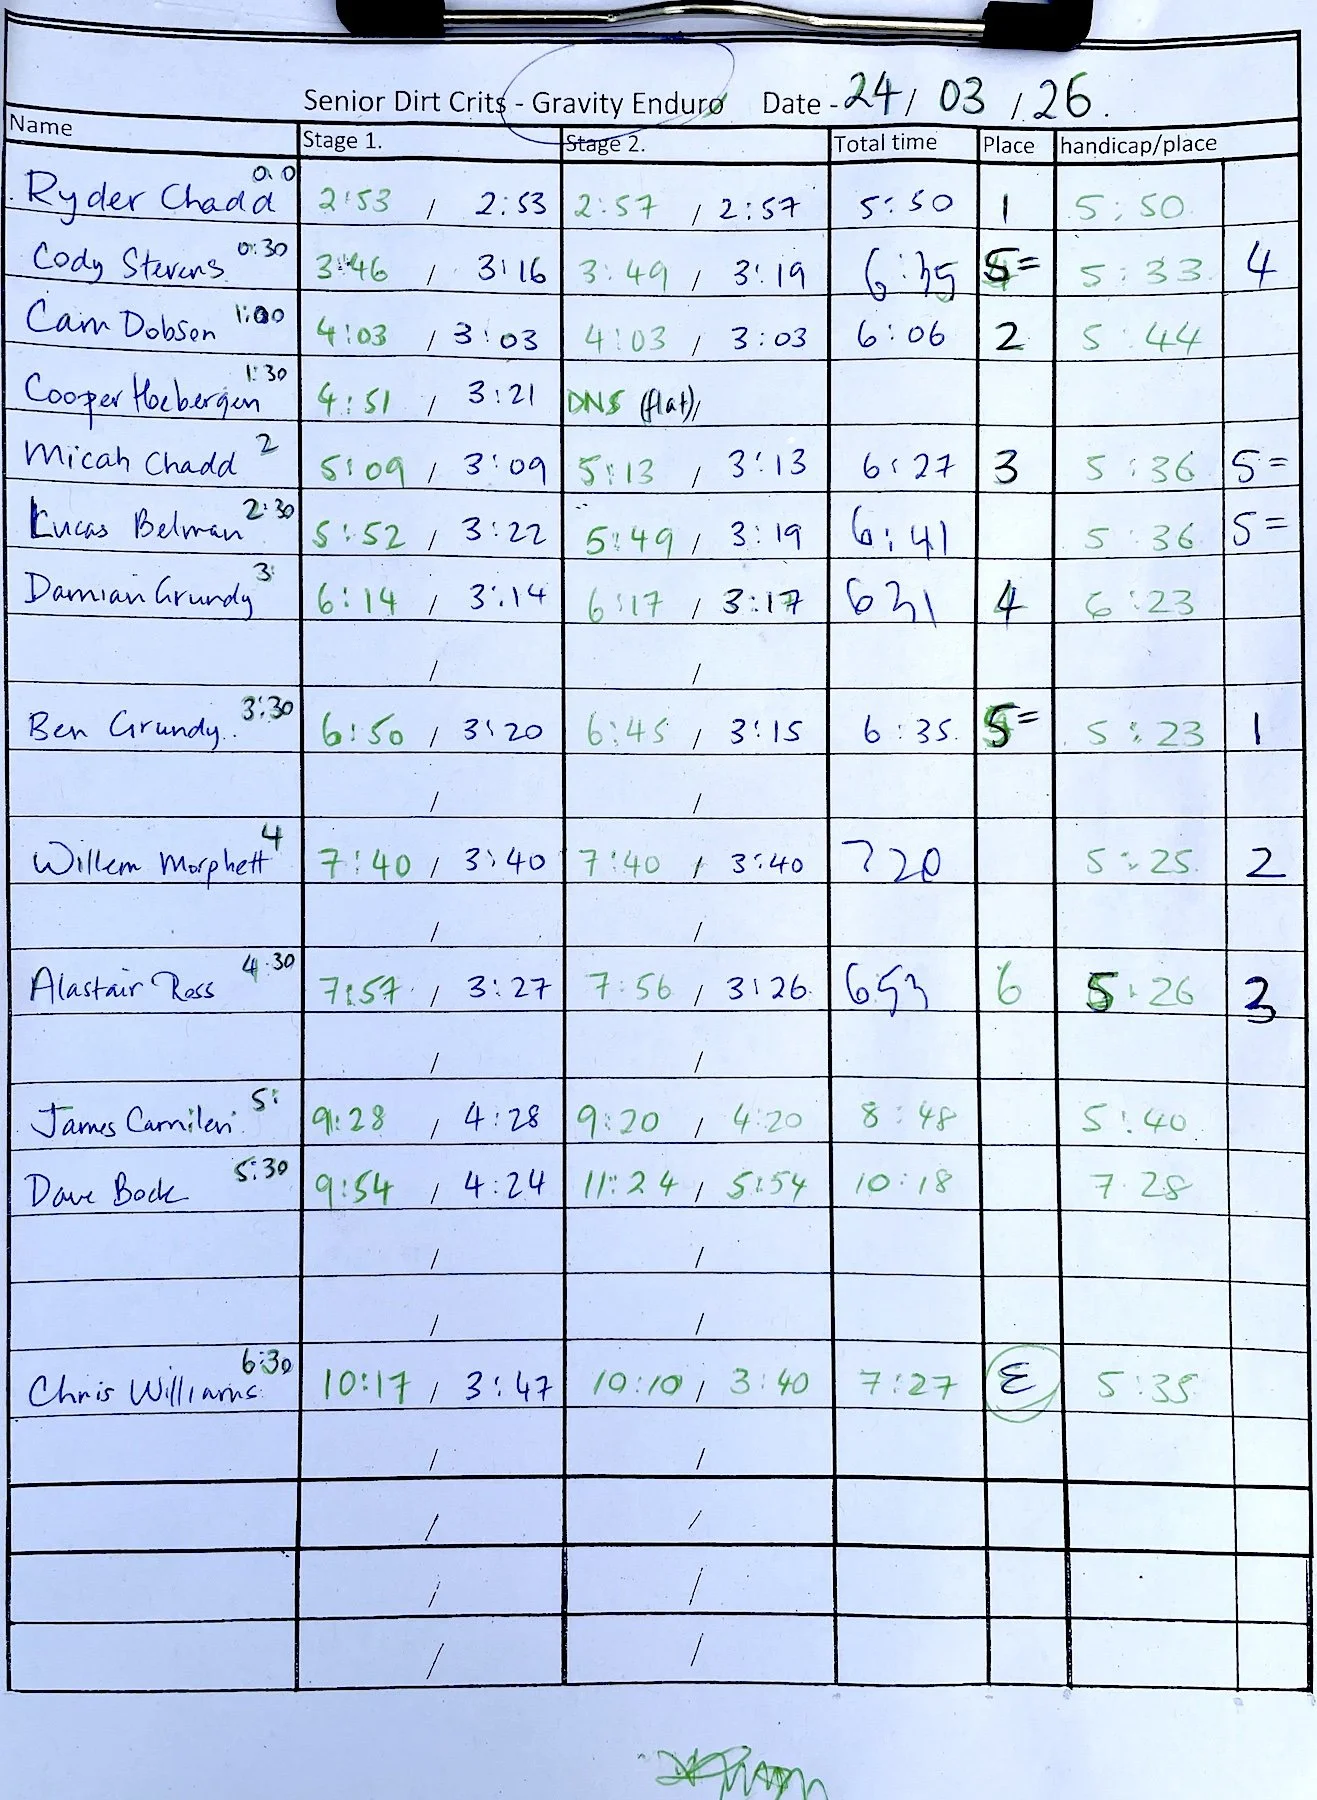 Senior Dirt Crits - Gravity Enduro Date - 24 / 03 / 26.
Name Stage 1. Stage 2. Total time Place handicap/place
Ryder Chadd 0.0 2:53 / 2:53 2:57 / 2:57 5:50 1 5:50
Cody Stevens 0:30 3:46 / 3:16 3:49 / 3:19 6:35 5= 5:33 4
Cam Dobson 1:00 4:03 / 3:03 4:03 / 3:03 6:06 2 5:44
Cooper Hoebergen 1:30 4:51 / 3:21 DNS (flat) /
Micah Chadd 2 5:09 / 3:09 5:13 / 3:13 6:27 3 5:36 5=
Lucas Belman 2:30 5:52 / 3:22 5:49 / 3:19 6:41 5:36 5=
Damian Grundy 3: 6:14 / 3:14 6:17 / 3:17 631 4 6:23
/ /
Ben Grundy. 3:30 6:50 / 3:20 6:45 / 3:15 6:35 5= 5:23 1
/ /
Willem Morphett 4 7:40 / 3:40 7:40 / 3:40 720 5:25 2
/ /
Alastair Ross 4:30 7:57 / 3:27 7:56 / 3:26 653 6 5:26 3
/ /
James Camileri 5: 9:28 / 4:28 9:20 / 4:20 8:48 5:40
Dave Bock 5:30 9:54 / 4:24 11:24 / 5:54 10:18 7:28
/ /
/ /
Chris Williams 6:30 10:17 / 3:47 10:10 / 3:40 7:27 E 5:35
/ /
/ /
/ /
/ /